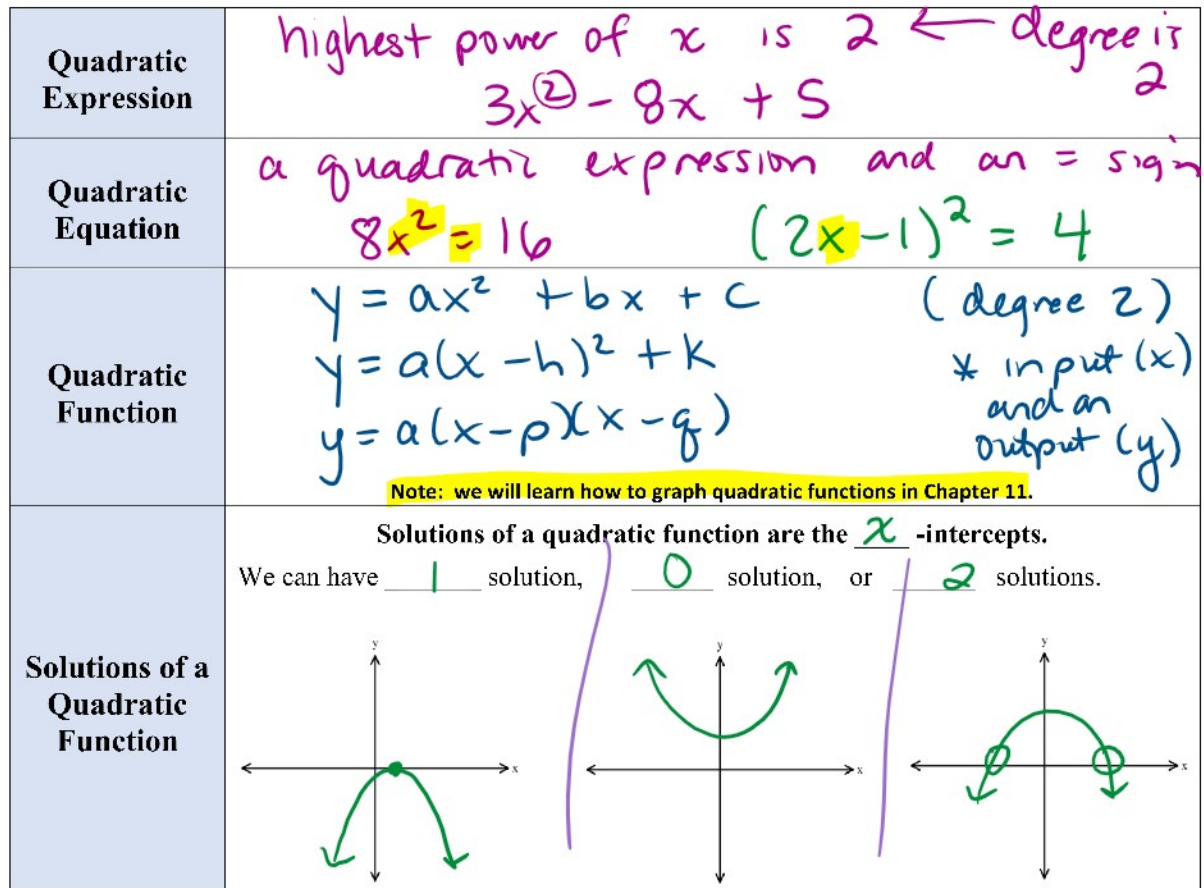 Quadratic
Expression
highest power of x is 2 ← degree is
2
3x² - 8x + 5
Quadratic
Equation
a quadratic expression and an = sign
8x² = 16 (2x-1)² = 4
Quadratic
Function
y = ax² + bx + c (degree 2)
y = a(x-h)² + k * input (x)
and an
y = a(x-p)(x-q) output (y)
Note: we will learn how to graph quadratic functions in Chapter 11.
Solutions of a
Quadratic
Function
Solutions of a quadratic function are the x -intercepts.
We can have 1 solution, 0 solution, or 2 solutions.
y y y
x x x